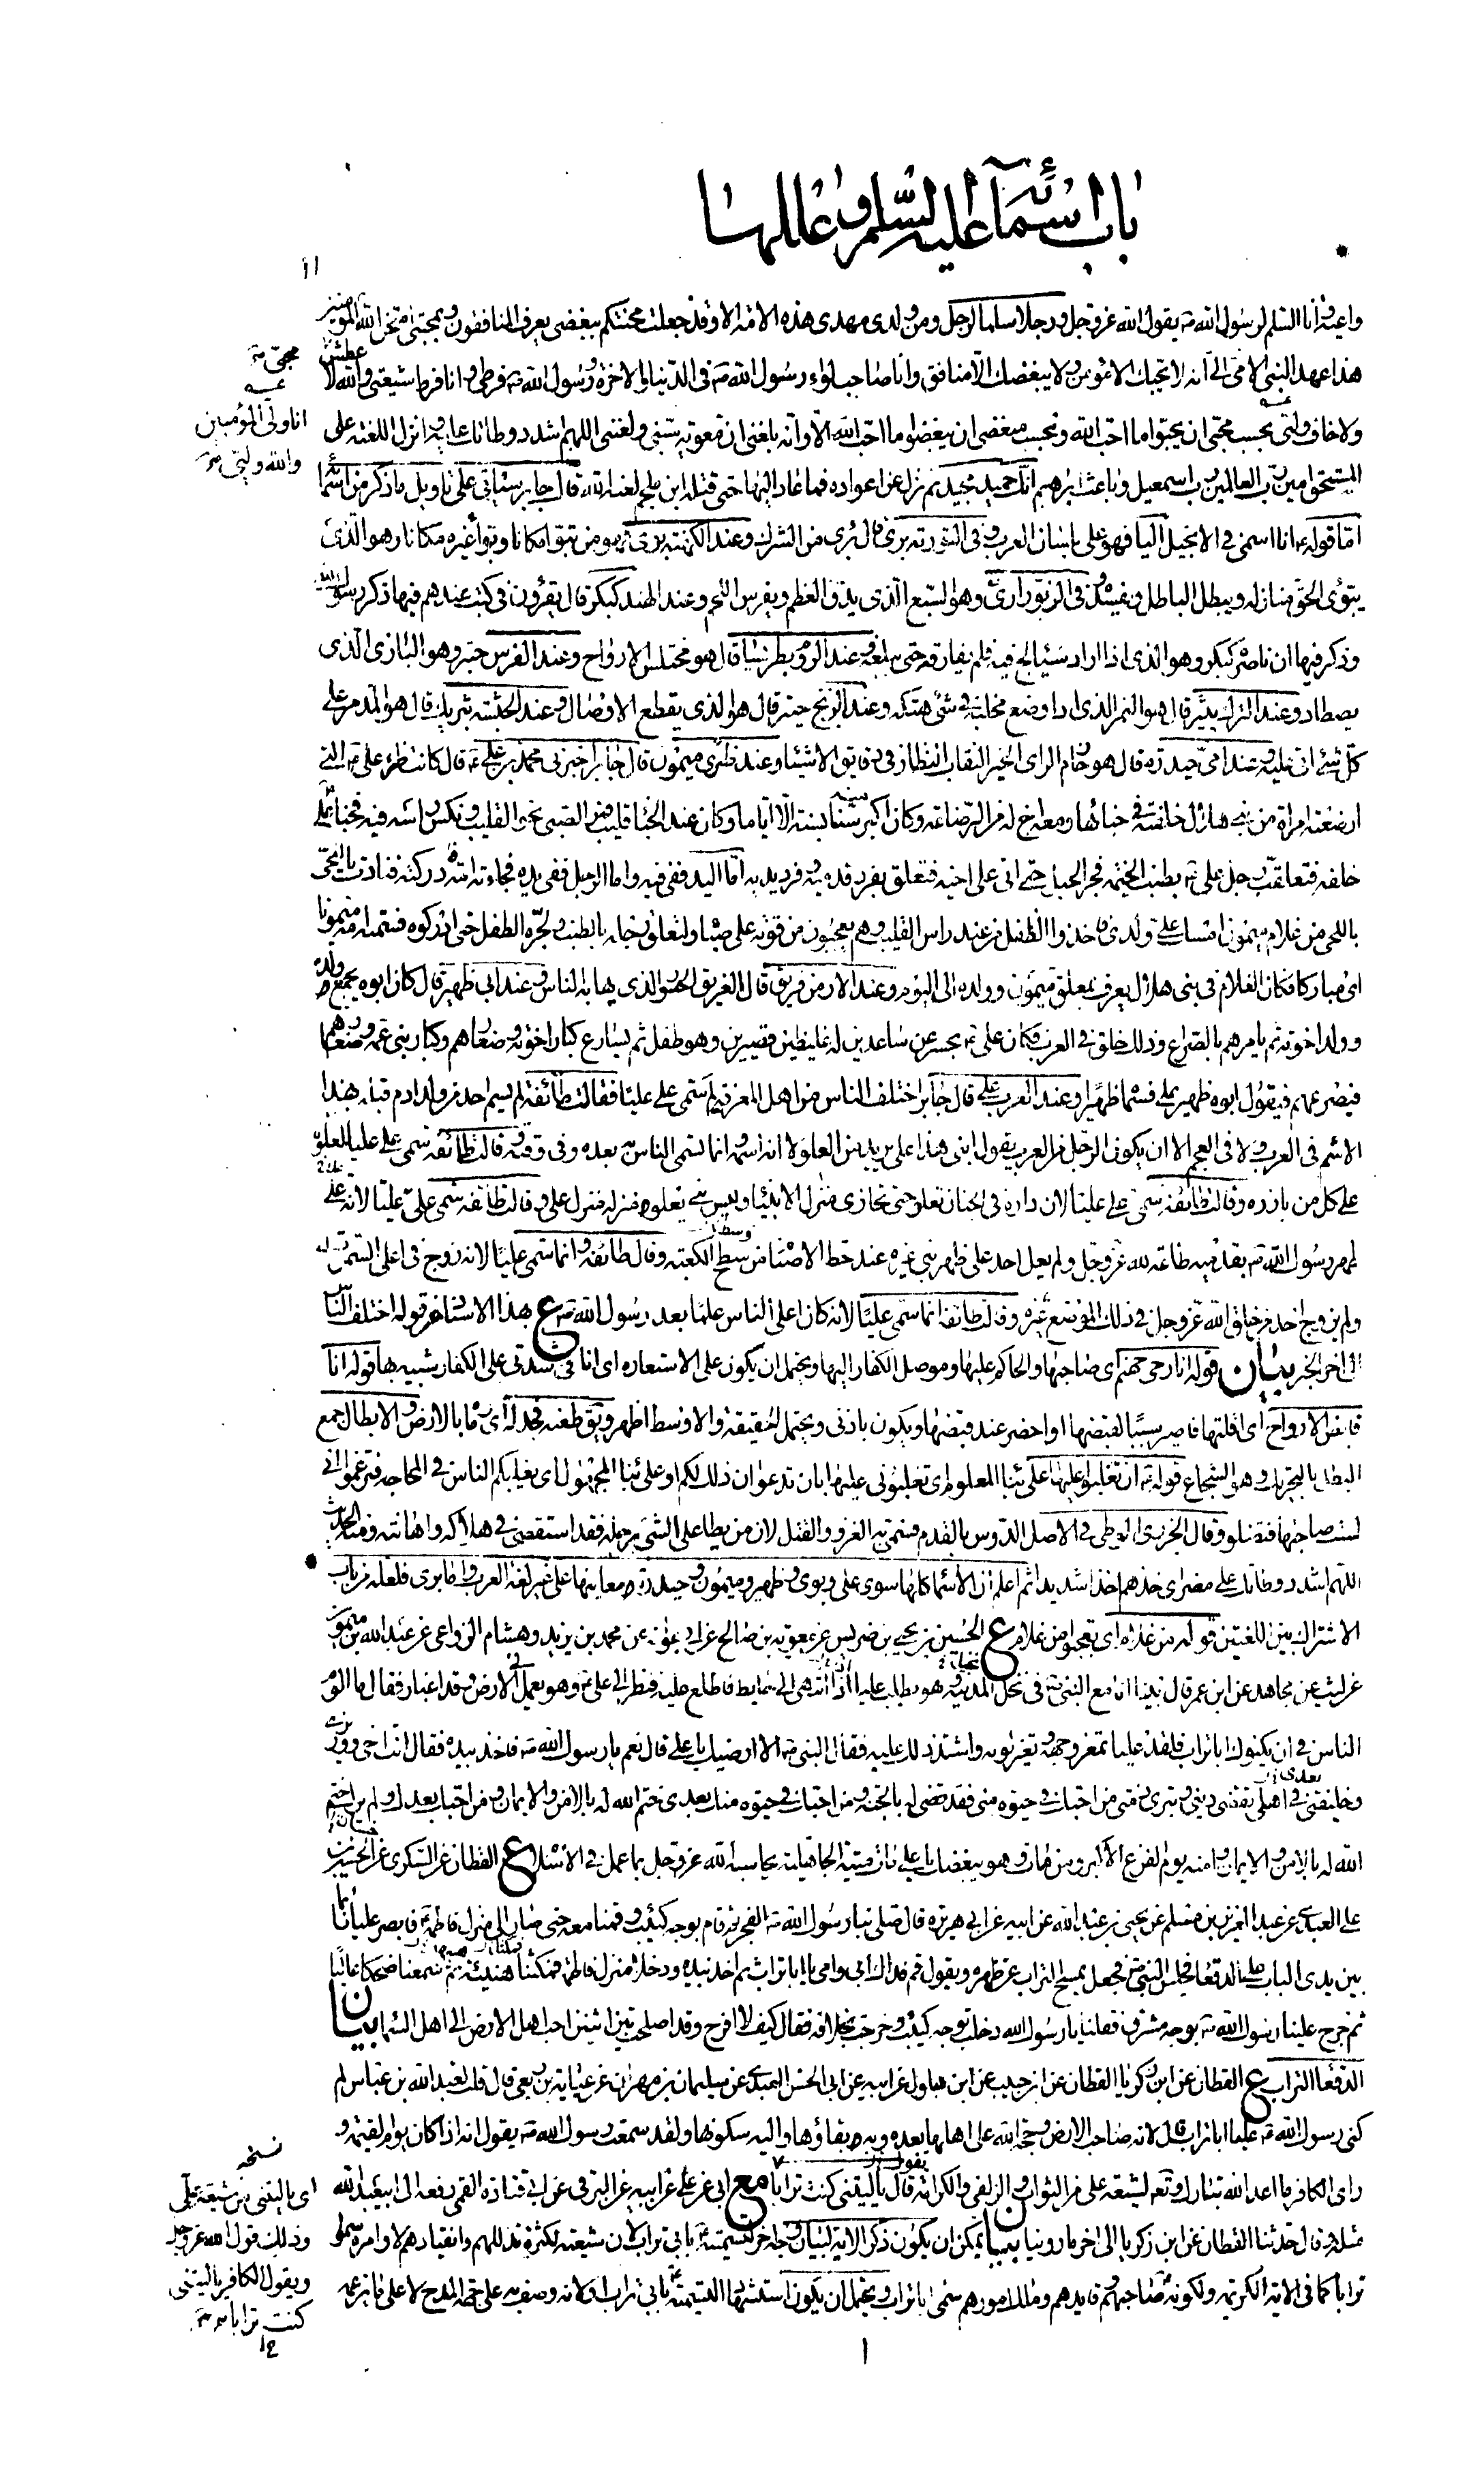 باب اسمائه عليه السلم و عللها
11
واعية وانا السلم لرسول الله ص يقول الله عز وجل ورجلا سلما لرجل ومن ولدى مهدى هذه الامة الا وقد جعلت محنتكم ببغضى يعرف المنافقون وبمحبتى امتحن الله المؤمنين
هذا عهد النبى الامى الىّ انه لا يحبك الا مؤمن ولا يبغضك الا منافق وانا صاحب لواء رسول الله ص فى الدنيا والاخرة ورسول الله ص فرطى وانا فرط شيعتى والله لا عطش
محبى
ولا خاف وليى بحسب محبى ان يحبوا ما احب الله وبحسب مبغضى ان يبغضوا ما احب الله الا وانه بلغنى ان معوية سبنى ولعننى اللهم اشدد وطاتك عليه وانزل اللعنة على
انا ولى المؤمنين
والله وليى
المستحق امين رب العالمين رب اسمعيل وباعث ابرهيم انك حميد مجيد ثم نزل عن اعواده فما عاد اليها حتى قتله ابن ملجم لعنه الله قال جابر سناتى على تاويل ما ذكر من اسمائه
اما قوله ع انا اسمى فى الانجيل اليا فهو على بلسان العرب وفى التورية برئ قال برى من الشرك وعند الكهنة بوئ هو من تبوأ مكانا وبوأ غيره مكانا وهو الذى
يبوئ الحق منازله ويبطل الباطل ويفسده وفى الزبور ارى وهو السبع الذى يدق العظم ويفرس اللحم وعند الهند كبكر قال يقرؤن فى كتب عندهم فيها ذكر رسول الله
وذكر فيها ان ناصره كبكر وهو الذى اذا اراد شيئا لج فيه فلم يفارقه حتى يبلغه وعند الروم بطريسا قال هو مختلس الارواح وعند الفرس حبتر وهو البازى الذى
يصطاد وعند الترك بثير قال هو النمر الذى اذا وضع مخلبه فى شئ هتكه وعند الزنج حيتر قال هو الذى يقطع الاوصال وعند الحبشة بثريك قال هو المدمر على
كل شئ اتى عليه وعند امى حيدرة قال هو الحازم الراى الخير النقاب النظار فى دقايق الاشياء وعند ظئرى ميمون قال جابر اخبرنى محمد بن على ع قال كانت ظئر على ع التى
ارضعته امراة من بنى هلال خلفته فى خبائها ومعه اخ له من الرضاعة وكان اكبر منه سنا بسنة الا اياما وكان عند الخباء قليب فمر الصبى نحو القليب ونكس راسه فيه فحبا على
خلفه فتعلقت رجل على ع بطنب الخيمة فجر الحبل حتى اتى على اخيه فتعلق بفرد قدميه وفرد يديه اما اليد ففى فيه واما الرجل ففى يده فجاءته امه فادركته فنادت يا للحى
يا للحى من غلام ميمون امسك على ولدى فاخذوا الطفل من عند راس القليب وهم يعجبون من قوته على صباه ولتعلق رجله بالطنب ولجره الطفل حتى ادركوه فسمته امه ميمونا
اى مباركا فكان الغلام فى بنى هلال يعرف بمعلق ميمون وولده الى اليوم وعند الارمن فريق قال الفريق الجسور الذى يهابه الناس وعند ابى ظهير قال كان ابوه يجمع ولده
وولد اخوته ثم يامرهم بالصراع وذلك خلق فى العرب فكان على ع يحسر عن ساعدين له غليظين قصيرين وهو طفل ثم يسارع كبار اخوته وصغارهم وكبار بنى عمه وصغارهم
فيصرعهم فيقول ابوه ظهر على فسماه ظهيرا وعند العرب على قال جابر اختلف الناس من اهل المعرفة لم سمى على عليا فقالت طائفة لم يسم احد من ولد ادم قبله بهذا
الاسم فى العرب ولا فى العجم الا ان يكون الرجل من العرب يقول ابنى هذا على يريد من العلو لا انه اسمه وانما تسمى الناس به بعده وفى وقته وقالت طائفة سمى على عليا لعلوه
على كل من بارزه وقالت طائفة سمى على عليا لان داره فى الجنان تعلو حتى تحاذى منازل الانبياء وليس نبى تعلو منزلته منزل على وقالت طائفة سمى على عليا لانه علا
ظهر رسول الله ص بقدميه طاعة لله عز وجل ولم يعل احد على ظهر نبى غيره عند حط الاصنام من سطح الكعبة وقالت طائفة وانما سمى عليا لانه زوج فى اعلى السموات
ولم يزوج احد من خلق الله عز وجل فى ذلك الموضع غيره وقالت طائفة انما سمى عليا لانه كان اعلى الناس علما بعد رسول الله ص ع بهذا الاسناد من قوله اختلف الناس
الى اخر الخبر بيان قوله انا رحى جهنم اى صاحبها والحاكم عليها وموصل الكفار اليها ويحتمل ان يكون على الاستعارة اى انا فى شدتى على الكفار شبيه بها قوله انا
قابض الارواح اى اقتلها فاصير سببا لقبضها او احضر عند قبضها ويكون باذنى ويحتمل الحقيقة والاوسط اظهر ويق طعنه فجدله اى رماه بالارض والابطال جمع
البطل بالتحريك وهو الشجاع قوله ع ان تغلبوا عليها على بناء المعلوم اى تغلبونى عليها بان تدعوا ان ذلك لكم او على بناء المجهول اى يغلبكم الناس فى المحاجة فتزعموا انى
لست صاحبها فتضلوا وقال الجزرى الوطى فى الاصل الدوس بالقدم فسمى به الغزو والقتل لان من يطا على الشئ برجله فقد استقصى فى هلاكه واهانته ومنه الحديث
اللهم اشدد وطاتك على مضر اى خذهم اخذا شديدا ثم اعلم ان الاسماء كلها سوى على وبوئ وظهير وميمون وحيدرة معاينها على غير لغة العرب واما برى فلعله من باب
الاشتراك بين اللغتين قوله من غلام اى تعجبوا من غلام ع الحسين بن يحيى بن ضريس عن معوية بن صالح عن ابى عوانة عن محمد بن يزيد وهشام الزواعى عن عبد الله بن ميمون
عن ليث عن مجاهد عن ابن عمر قال بينا انا مع النبى ص فى نخل المدينة وهو يطلب عليا اذا انتهى الى حايط فاطلع عليه فنظر الى على ع وهو يعمل فى الارض وقد اغبار فقال ما الوم
الناس فى ان يكنوك ابا تراب فلقد رايت عليا تمعر وجهه وتغير لونه واشتد ذلك عليه فقال النبى ص الا ارضيك يا على قال نعم يا رسول الله ص فاخذ بيده فقال انت اخى ووزيرى
وخليفتى فى اهلى بعدى تقضى دينى وتبرى ذمتى من احبك فى حيوة منى فقد قضى له بالجنة ومن احبك فى حيوة منك بعدى ختم الله له بالامن والايمان ومن احبك بعدك ولم يرك ختم
الله له بالامن والايمان وامنه يوم الفزع الاكبر ومن مات وهو يبغضك يا على مات ميتة الجاهلية يحاسبه الله عز وجل بما عمل فى الاسلام ع القطان عن السكرى عن الحسين بن
على العبدى عن عبد العزيز بن مسلم عن يحيى بن عبد الله عن ابيه عن ابى هريرة قال صلى بنا رسول الله ص الفجر ثم قام بوجه كئيب وقمنا معه حتى صار الى منزل فاطمة ع فابصر عليا نائما
بين يدى الباب على الدقعاء فجلس النبى ص فجعل يمسح التراب عن ظهره ويقول قم فداك ابى وامى يا ابا تراب ثم اخذ بيده ودخلا منزل فاطمة فمكثنا هنيئة ثم سمعنا ضحكا عاليا
ثم خرج علينا رسول الله ص بوجه مشرق فقلنا يا رسول الله دخلت بوجه كئيب وخرجت بخلافه فقال كيف لا افرح وقد اصلحت بين اثنين احب اهل الارض الى اهل السماء بيان
الدقعاء التراب ع القطان عن ابن زكريا القطان عن ابن حبيب عن ابن بهلول عن ابيه عن ابى الحسن العبدى عن سليمان بن مهران عن عباية بن ربعى قال قلت لعبد الله بن عباس لم
كنى رسول الله ص عليا ابا تراب قال لانه صاحب الارض وحجة الله على اهلها بعده وبه بقاؤها واليه سكونها ولقد سمعت رسول الله ص يقول انه اذا كان يوم القيمة و
راى الكافر ما اعد الله تبارك وتعالى لشيعة على من الثواب والزلفى والكرامة قال يا ليتنى كنت ترابا مع ابى عن على عن ابيه عن البرقى عن ابى قتادة القمى رفعه الى ابى عبد الله
مثله وق ل حدثنا القطان عن ابن زكريا الى اخر ما روينا بيان يمكن ان يكون ذكر الاية لبيان وجه اخر لتسميته ع بابى تراب لان شيعته لكثرة تذللهم وانقيادهم لاوامره سموا
ترابا كما فى الاية الكريمة ولكونه ع صاحبهم وقايدهم ومالك امورهم سمى ابا تراب ويحتمل ان يكون استشهادا لتسميته ع بابى تراب او لانه وصف به على جهة المدح لا على ما يزعمه
نسخه
اى يا ليتنى من شيعة على
وذلك قول الله عز وجل
ويقول الكافر يا ليتنى
كنت ترابا
12
1